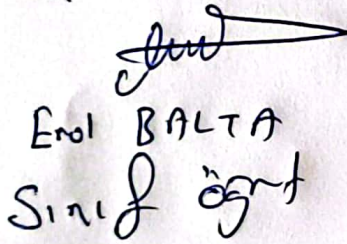 Erol BALTA
Sınıf öğrt